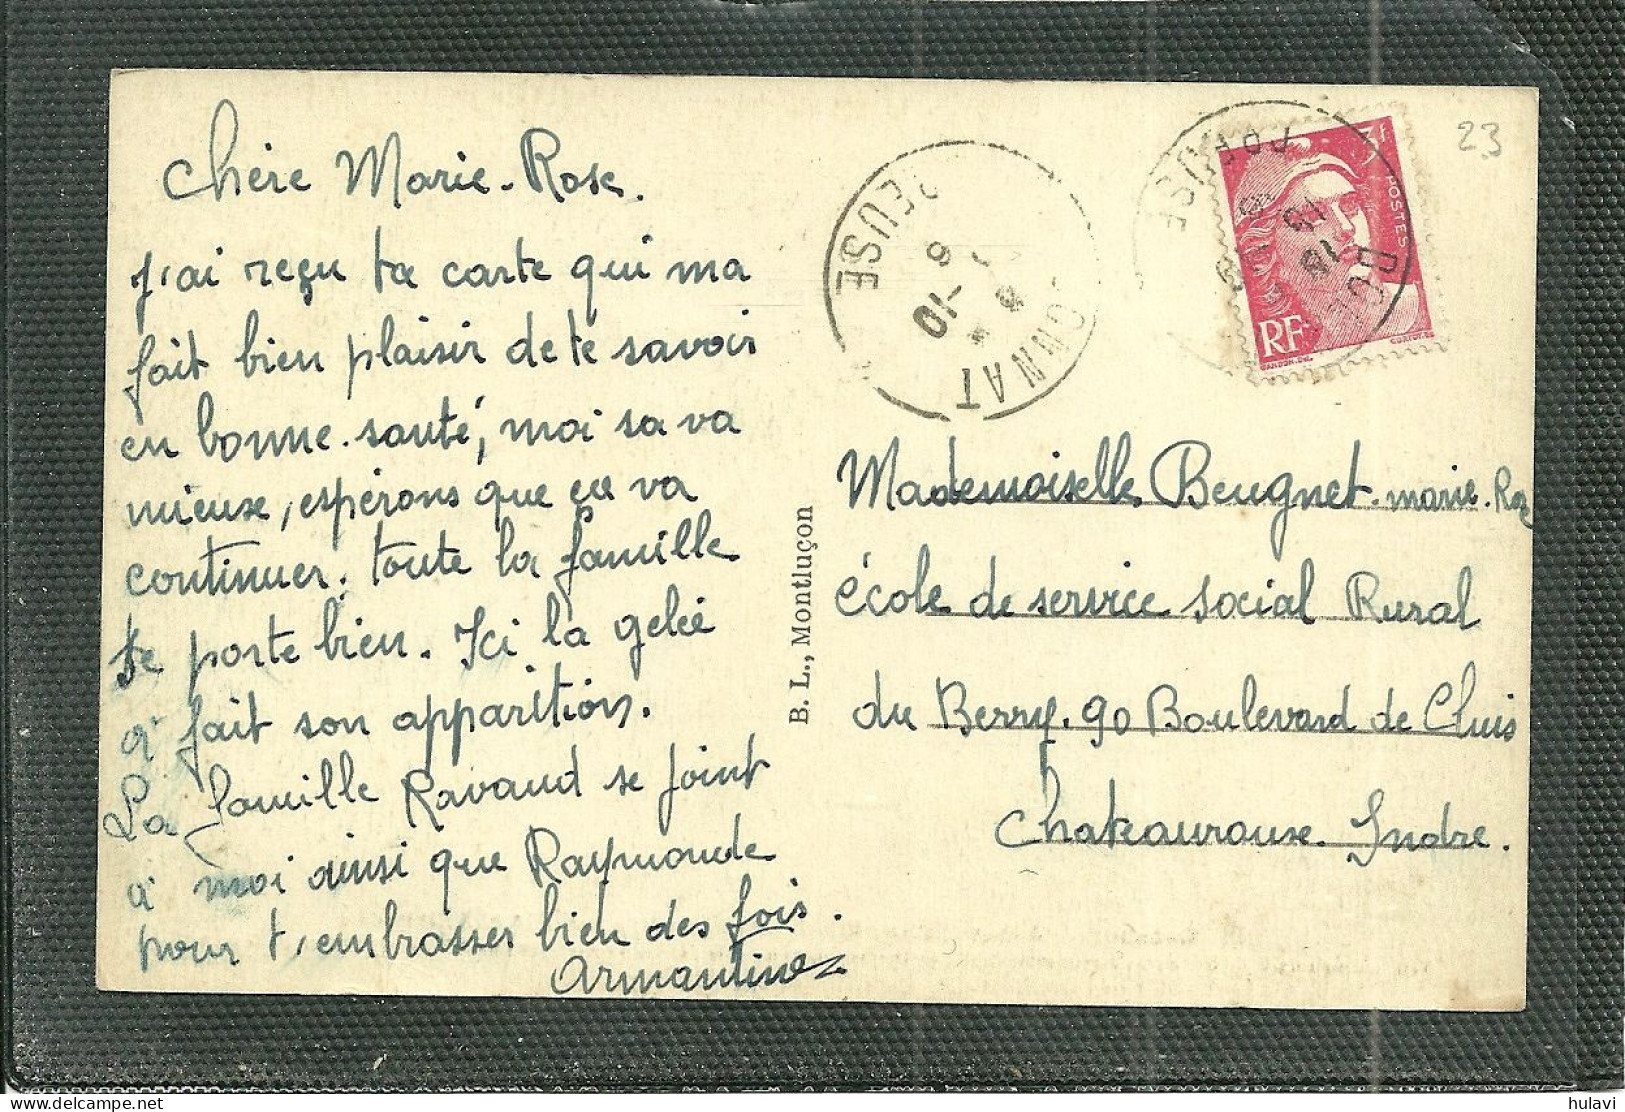 Chère Marie-Rose.
J'ai reçu ta carte qui ma
fait bien plaisir de te savoir
en bonne santé, moi sa va
mieuse, espérons que ça va
continuer. toute la famille
se porte bien. Ici la gelée
a fait son apparition.
La famille Ravaud se joint
à moi ainsi que Raymonde
pour t'embrasser bien des fois.
Armantine
B. L., Montluçon
CREUSE
6 -10
GNNAT
23
3F
POSTES
RF
GANDON. DEL.
CORTOT. SC.
Mademoiselle Beugnet-marie-Rose
école de service social Rural
du Berry. 90 Boulevard de Cluis
Chateauroux. Indre.
hulavi